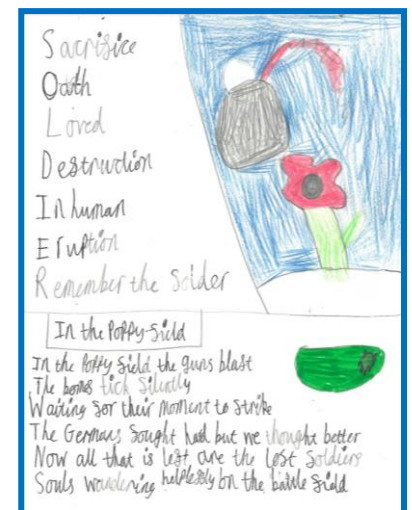 Sacrifice
Oath
Loved
Destruction
Inhuman
Eruption
Remember the Solder
In the Poppy field
In the Poppy field the guns blast
The boms tick silently
Waiting for their moment to strike
The Germans fought had but we thought better
Now all that is left are the lost soldiers
Souls wandering helplessly on the battle field